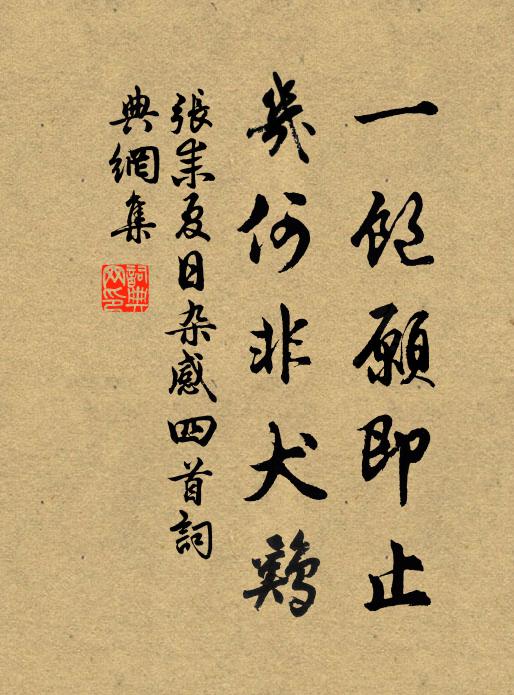 一飽願即止
幾何非犬鷄
張耒夏日杂感四首詞
典網集
詞典
网印